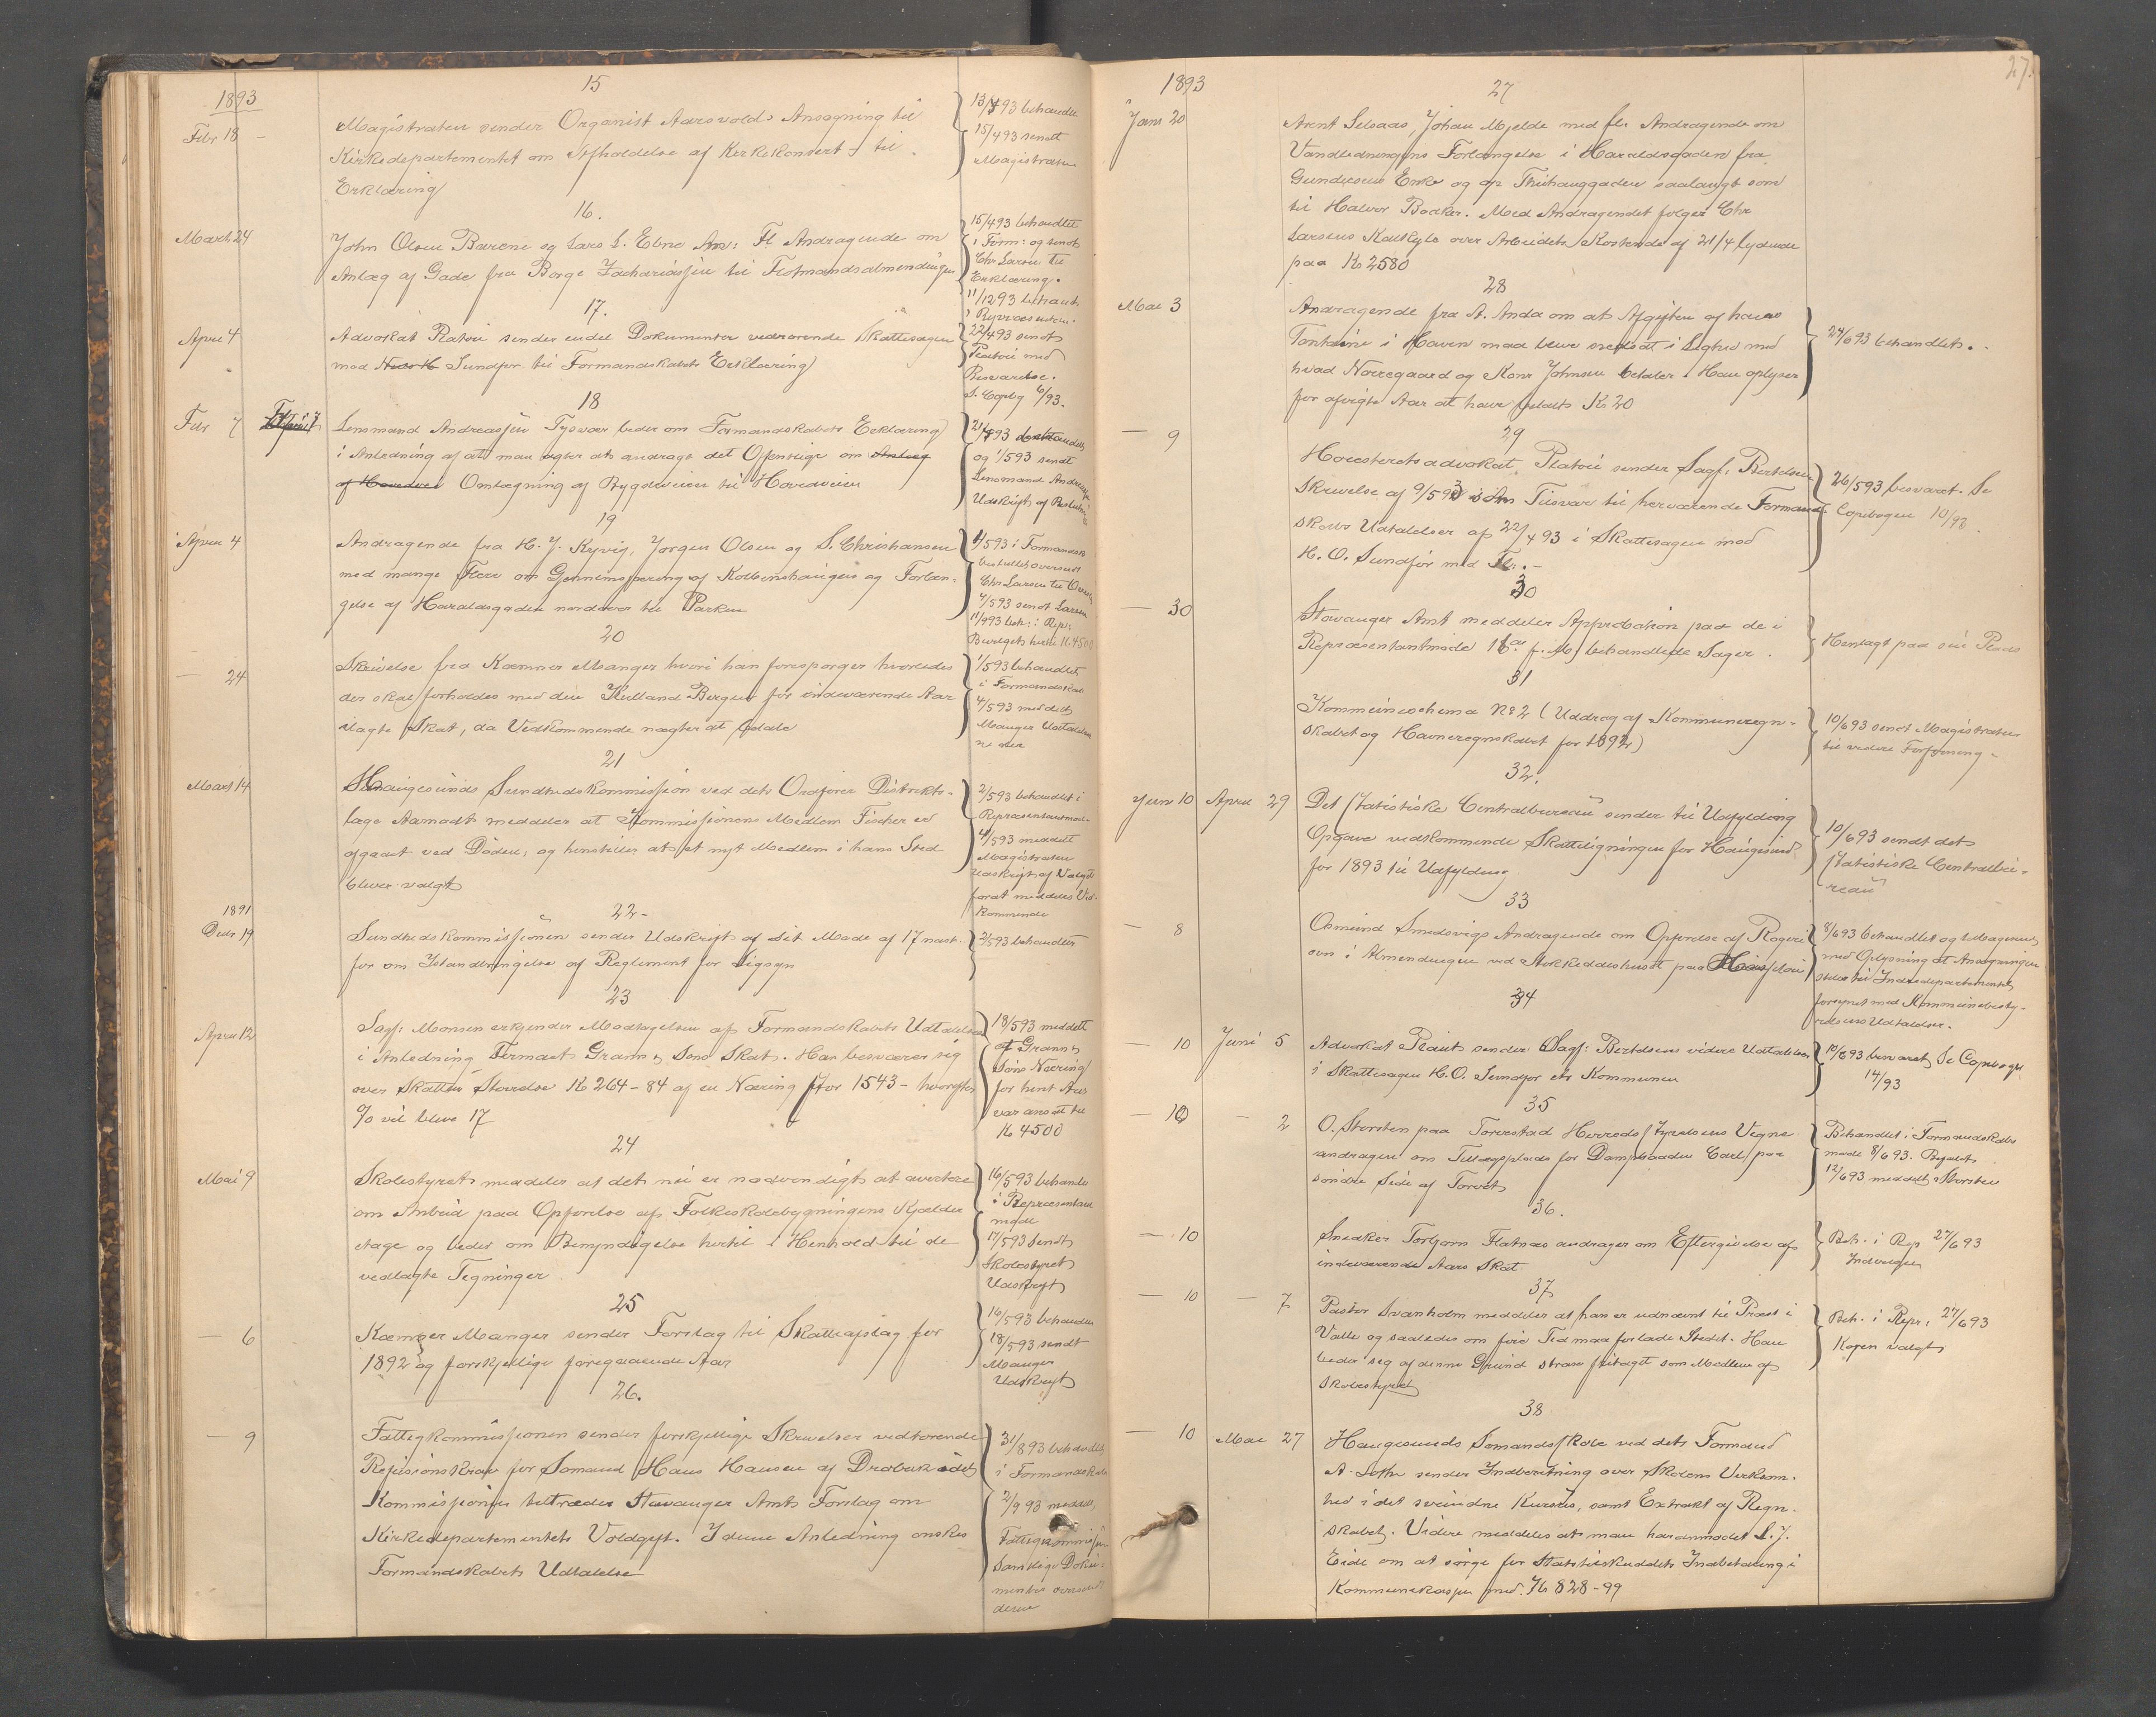 1893
15
Febr 18 -
Magistraten sender Organist Aarsvolds Ansøgning til
Kirkedepartementet om Afholdelse af Kirkekonsert - til
Erklæring
13/4 93 behandlet
15/4 93 sendt
Magistraten
16.
Marts 24
John Olsen Barene og Lars L. Ebne An: Fl Andragende om
Anlæg af Gade fra Borge Zachariassen til Flotmandsalmendingen
15/4 93 behandlet
i Form: og sendt
Chr Larsen til
Erklæring.
11/12 93 behandl
i Repræsentan.
17.
April 4
Advokat Platou sender endel Dokumenter vedrørende Skattesagen
mod Sundfør til Formandskabets Erklæring
22/4 93 sendt
Platou med
Besvarelse.
S. Copbg 6/93.
18
Febr 7
Lensmand Andreassen Tysvær beder om Formandskabets Erklæring
i Anledning af at man agter at andrage det Offentlige om Anlæg
af Hovedvei Omlægning af Bygdeveien til Hovedveien
21/4 93 behandlet
og 1/5 93 sendt
Lensmand Andreassen
Udskrift af Beslutn
19
April 4
Andragende fra H. J. Kyvig, Jørgen Olsen og S. Christiansen
med mange Flere om Gjennemsprening af Kolbenshaugen og Forlæn-
gelse af Haraldsgaden nordover til Parken
1/5 93 i Formandsk
besluttet oversendt
Chr Larsen til
4/5 93 sendt Larsen
11/9 93 beh: i Rep:
20
— 24
Skrivelse fra Kæmner Manger hvori han forespørger hvorledes
der skal forholdes med den Kielland Bergen for indeværende Aar
ilagte Skat, da Vedkommende nægter at betale
1/5 93 behandlet
i Formandskab
4/5 93 meddelt
Manger Udtalelser
ne der
21
Marts 14
Haugesunds Sundhedskommission ved dets Ordfører Distrikts-
læge Aamodt meddeler at Kommissionens Medlem Fischer er
afgaaet ved Døden, og henstiller at et nyt Medlem i hans Sted
bliver valgt
2/5 93 behandlet i
Repræsentantmøde
4/5 93 meddelt
Magistraten
Udskrift af Valget
forat meddeles Ved-
kommende
22 -
1891
Decbr 19
Sundhedskommissionen sender Udskrift af sit Møde af 17 næst
før om Istandbringelse af Reglement for Ligsyn
2/5 93 behandlet
23
April 12
Sagf: Monsen erkjender Modtagelsen af Formandskabets Udtalelser
i Anledning Firmaet Grann & Søns Skat. Han besværer sig
over Skattens Størrelse Kr 264-84 af en Næring stor 1543 - hvorefter
% vil blive 17
18/5 93 meddelt
at Grann &
Søns Næring
for hint Aar
var ansat til
Kr 4500
24
Mai 9
Skolestyret meddeler at det nu er nødvendigt at avertere
om Anbud paa Opførelse af Folkeskolebygningens Kjælder
etage og beder om Bemyndigelse hertil i Henhold til de
vedlagte Tegninger
16/5 93 behandlet
i Repræsentant
møde
17/5 93 sendt
Skolestyret
Udskrift
25
— 6
Kæmner Manger sender Forslag til Skatteafslag for
1892 og forskjellige foregaaende Aar
16/5 93 behandlet
18/5 93 sendt
Manger
Udskrift
26.
— 9
Fattigkommissionen sender forskjellige Skrivelser vedrørende
Refusionskrav for Sømand Hans Hansen af Drøbak idet
Kommissionen tiltræder Stavanger Amts Forslag om
Kirkedepartementets Voldgift. I denne Anledning ønskes
Formandskabets Udtalelse
31/8 93 behandlet
i Formandskab
2/9 93 meddelt
Fattigkommissionen
samtlige Doku-
menter oversendt
denne
27.
1893
27
Janr 20
Arent Selsaas, Johan Mjelde med fl: Andragende om
Vandledningens Forlængelse i Haraldsgaden fra
Gundersens Enke og op Thuhauggaden saalangt som
til Halvor Bakker. Med Andragendet følger Chr
Larsens Kalkyle over Arbeidets Kostende af 21/4 lydende
paa Kr 2580
28
Mai 3
Andragende fra A. Anda om at Afgiften af hans
Fontæne i Haven maa blive nedsat i Lighed med
hvad Nørregaard og Konr Johnsen betaler. Han oplyser
for afvigte Aar at have betalt Kr 20
24/6 93 behandlet.
29
— 9
Høiesteretsadvokat Platou sender Sagf: Bertelsens
Skrivelse af 9/5 93 som Tilsvar til herværende Formand-
skabs Udtalelser af 22/4 93 i Skattesagen mod
H. O. Sundfør med Fl: . -
26/5 93 besvaret. Se
Copibogen 10/93.
30
— 30
Stavanger Amt meddeler Approbation paa de i
Repræsentantmøde 16de f. M. behandlede Sager.
Henlagt paa sin Plads
31
Kommuneschema No 2 (Uddrag af Kommuneregn-
skabet og Havneregnskabet for 1892)
10/6 93 sendt Magistraten
til videre Forføining -
32.
Juni 10 April 29
Det statistiske Centralbureau sender til Udfylding
Opgave vedkommende Skatteligningen for Haugesund
for 1893 til Udfylding
10/6 93 sendt det
statistiske Centralbu-
reau
33
— 8
Osmund Smedsvigs Andragende om Opførelse af Røgeri
ovn i Almendingen ved Stikkeddeshuset paa
8/6 93 behandlet og tilbagesendt
med Oplysning at Ansøgningen
stiles til Indredepartementet
forsynet med Kommunebesty-
relsens Udtalelser.
34
— 10 Juni 5
Advokat Platou sender Sagf: Bertelsens videre Udtalelser
i Skattesagen H. O. Sundfør ctr Kommunen
10/6 93 besvaret Se Copibogen
14/93
35
— 10 — 2
O. Storsten paa Torvestad Herredsstyrelsens Vegne
andrager om Tillægsplads for Dampbaaden Carl paa
søndre Side af Torvet
Behandlet i Formandskabs
møde 8/6 93. Bifaldt
12/6 93 meddelt Storsten
36.
— 10
Snekker Torbjørn Flatnæs andrager om Eftergivelse af
indeværende Aars Skat
Beh. i Rep 27/6 93
Indvilget
37
— 10 — 7
Pastor Svanholm meddeler at han er udnævnt til Præst i
Valle og saaledes om føie Tid maa forlade Stedet. Han
beder sig af denne Grund strax fritaget som Medlem af
Skolestyret
Beh. i Repr: 27/6 93
Koren valgt
38
— 10 Mai 27
Haugesunds Sømandsskole ved dets Formand
A. Lothe sender Indberetning over Skolens Virksom-
hed i det svundne Kursus, samt Extrakt af Regn-
skabet. Videre meddeles at man har anmodet L. J.
Eide om at sørge for Statstilskuddets Indbetaling i
Kommunekassen med Kr 828-99